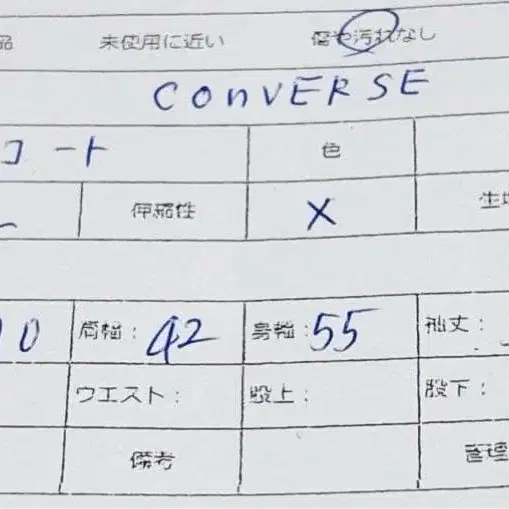 品 未使用に近い 傷や汚れなし
CONVERSE
コート 色
伸縮性 X 生地
10 肩幅: 42 身幅: 55 袖丈:
ウエスト: 股上: 股下:
備考 管理